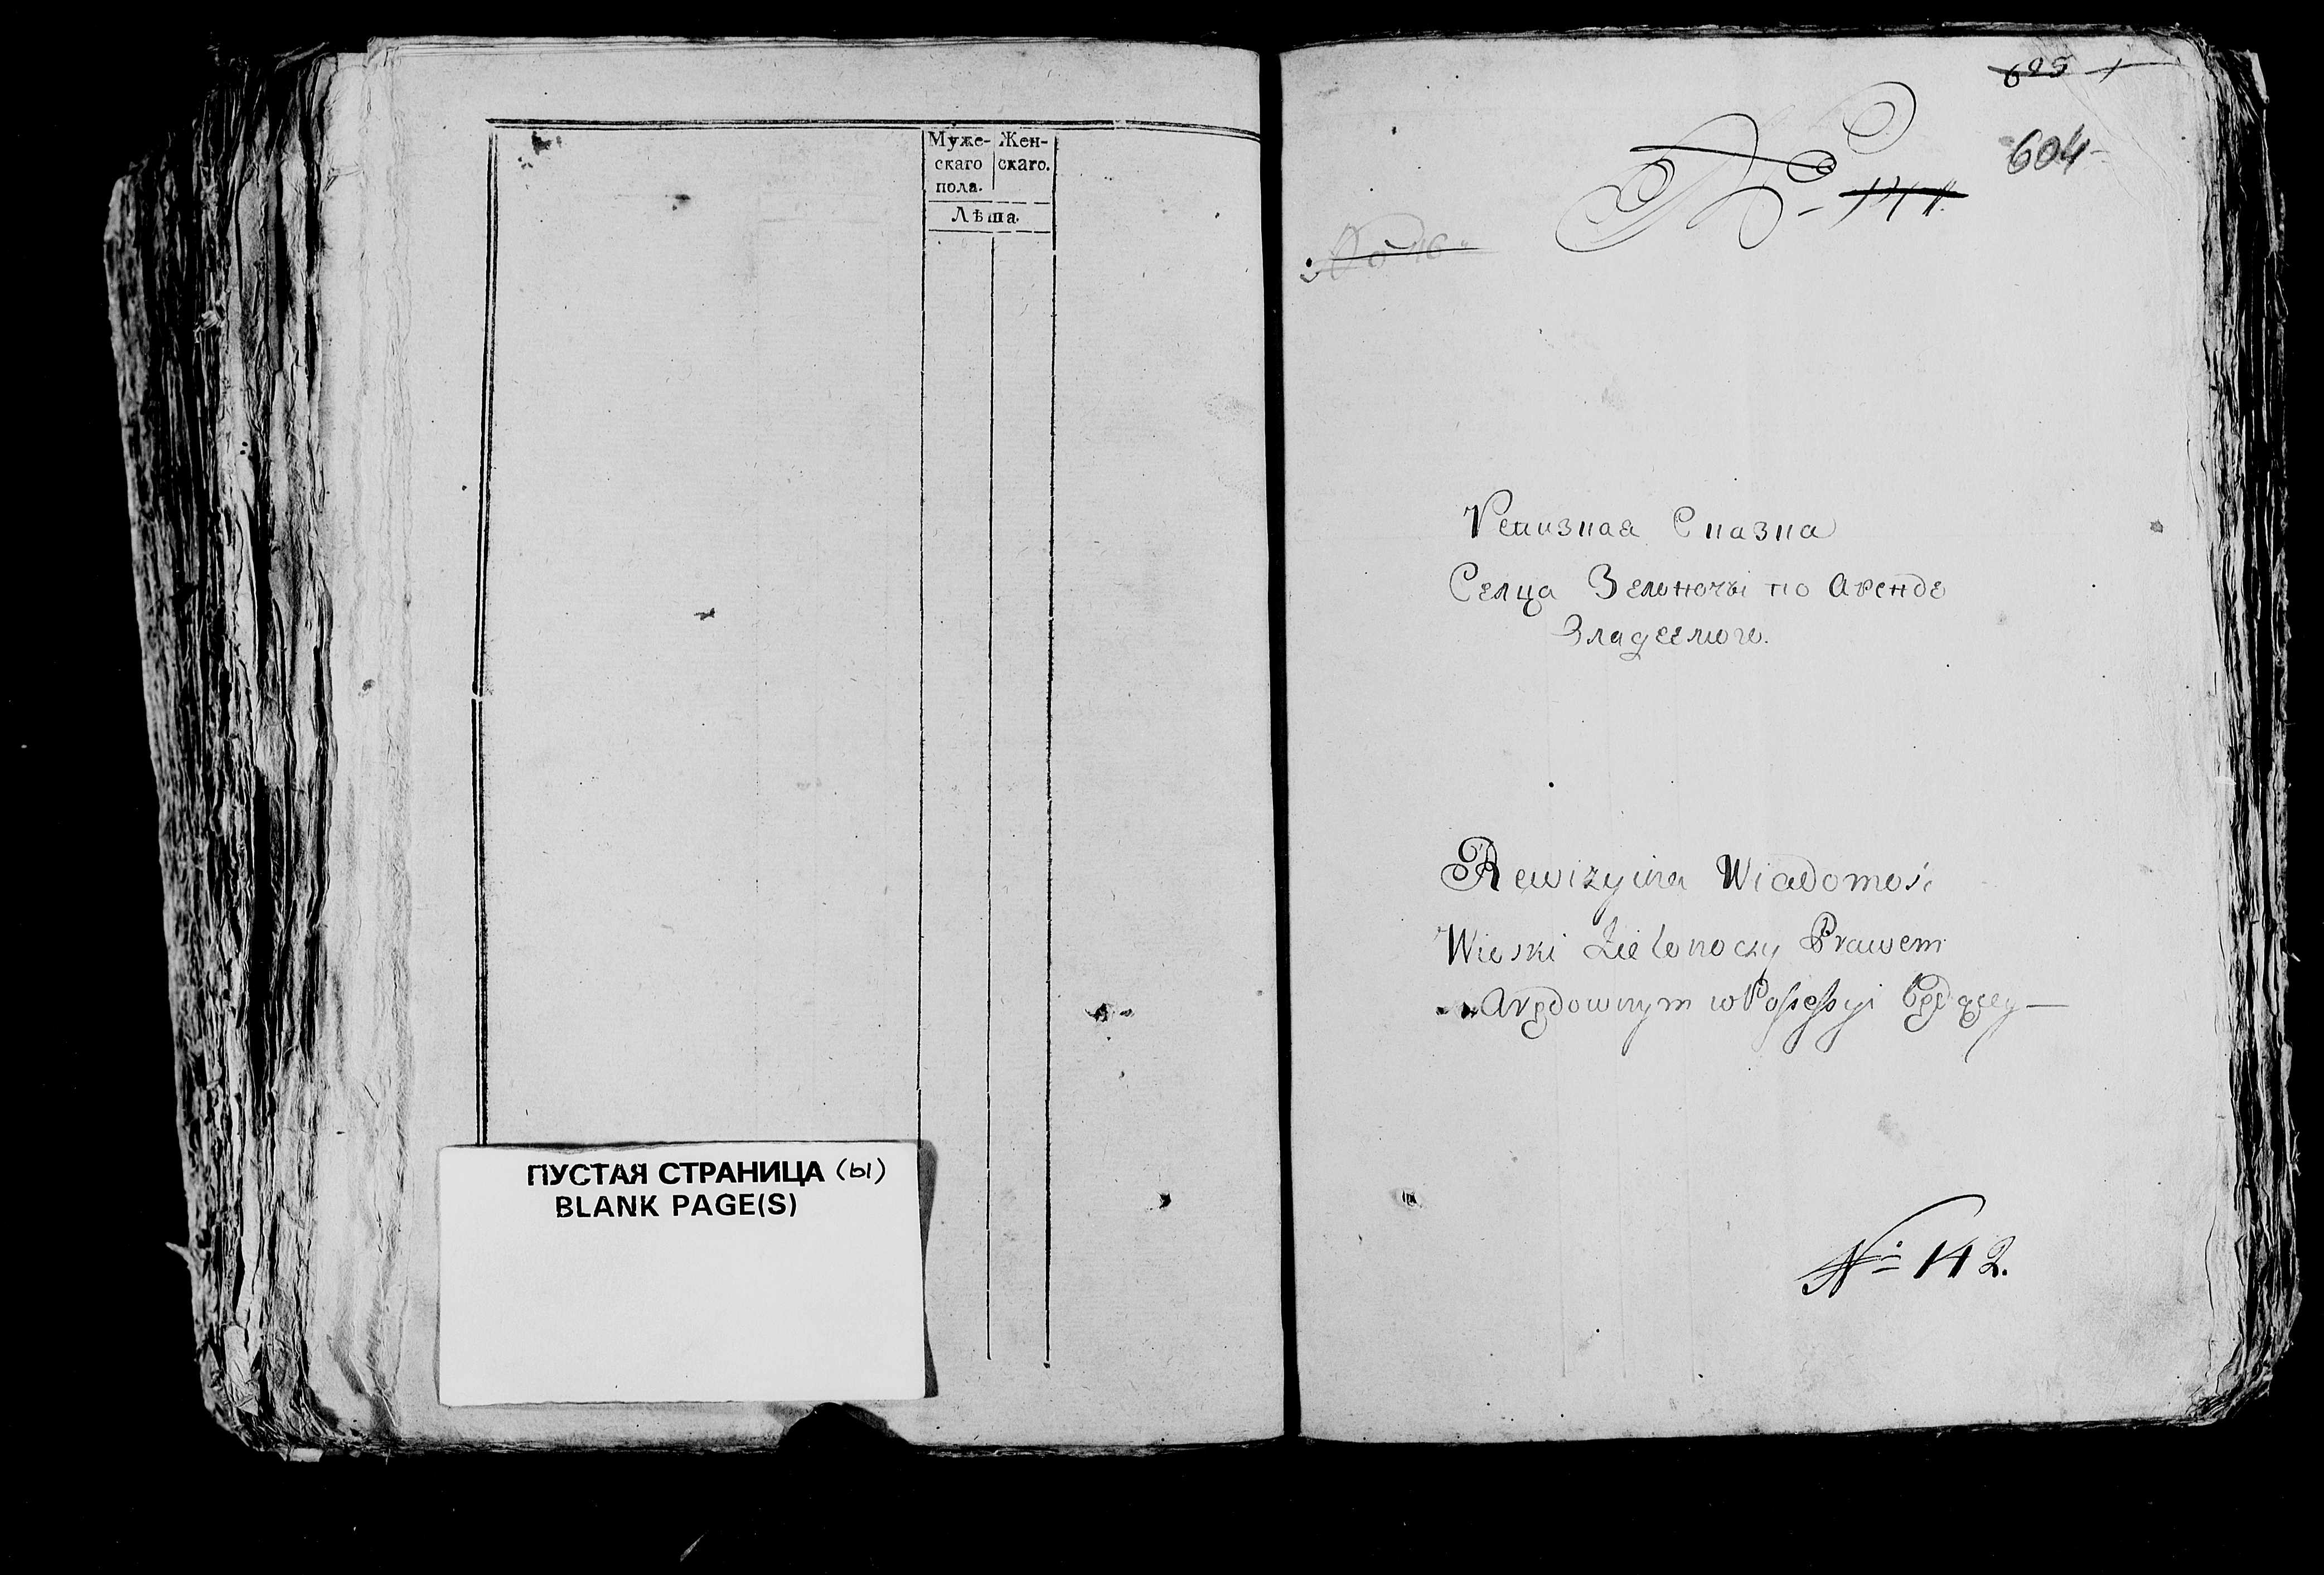 Муже- Жен-
скаго скаго.
пола.
Лѣта.
ПУСТАЯ СТРАНИЦА (ы)
BLANK PAGE(S)
604
№ 141
Ревизная Сказка
Селца Зелюночи по Аренде
Владеемого.
Rewizyina Wiadomość
Wioski Zielonoczy Prawem
Arędownym w Possessyi będącey
№ 142.